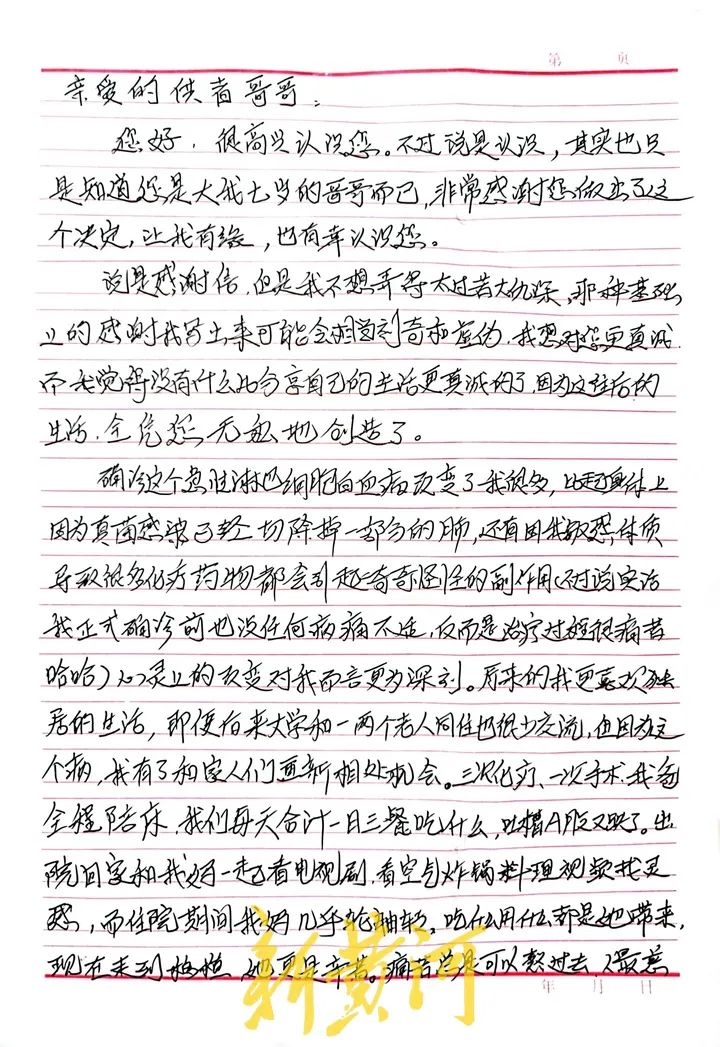 第 页
亲爱的供者哥哥：
您好，很高兴认识您。不过说是认识，其实也只
是知道您是大我七岁的哥哥而已，非常感谢您做出了这
个决定，让我有缘，也有幸认识您。
说是感谢信，但是我不想弄得太过苦大仇深，那种基础
上的感谢我写出来可能会相当刻奇和虚伪，我想对您更真诚，
而我觉得没有什么比分享自己的生活更真诚的了，因为这往后的
生活，全凭您无私地创造了。
确诊这个急性淋巴细胞白血病改变了我很多，比起身体上
因为真菌感染了轻切除掉一部分的肺，还有因我敏感体质
导致很多化疗药物都会引起奇奇怪怪的副作用（不过说实话
我正式确诊前也没任何病痛不适，反而是治疗过程很痛苦
哈哈）心灵上的改变对我而言更为深刻。原来的我更喜欢独
居的生活，即便后来大学和一两个老人同住也很少交流，但因为这
个病，我有了和家人们重新相处机会。三次化疗、一次手术，我爸
全程陪床，我们每天合计一日三餐吃什么，吐槽A股又跌了。出
院回家和我妈一起看电视剧，看空气炸锅料理视频找灵
感，而住院期间我妈几乎轮轴转，吃什么用什么都是她带来，
现在来到 她更是辛苦。痛苦总是可以熬过去，
年 月 日
新黄河